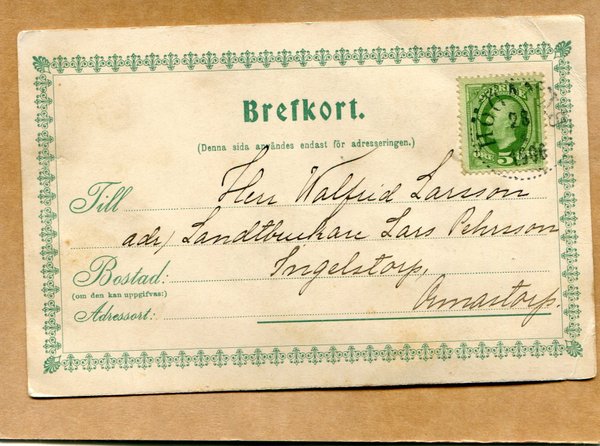 Brefkort.
(Denna sida användes endast för adresseringen.)
Till Herr Walfrid Larsson
adr/ Landtbrukare Lars Pehrsson
Bostad: Ingelstorp,
(om den kan uppgifvas:)
Adressort: Önnastorp.
5